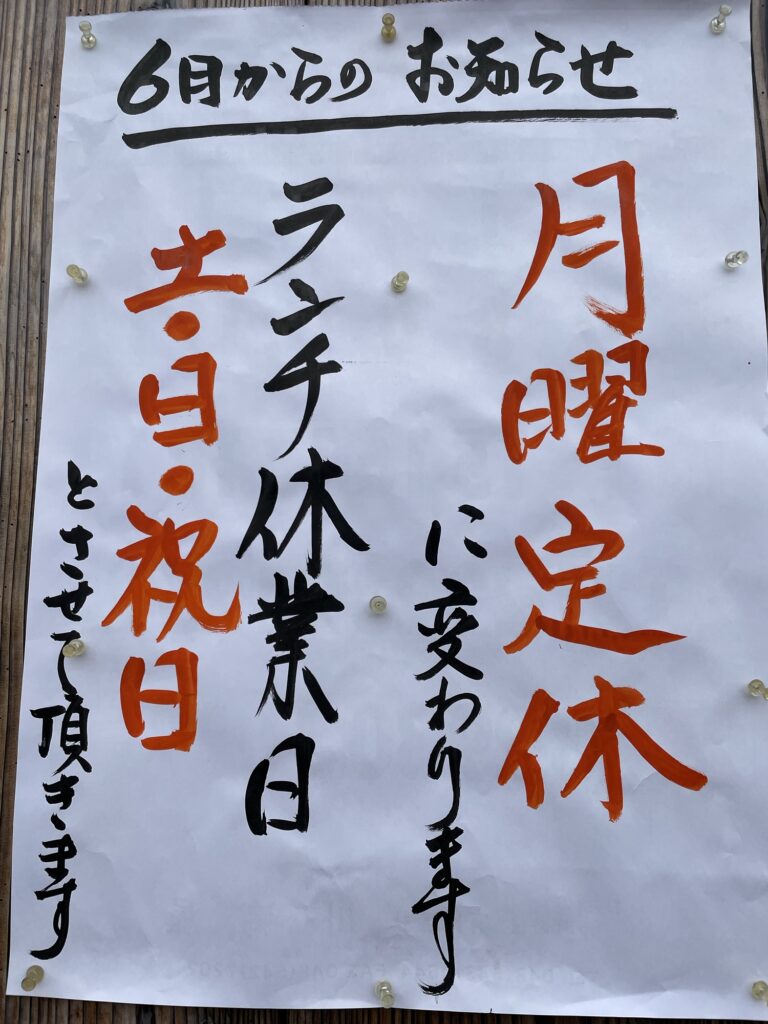 6月からのお知らせ
月曜定休
に変わります
ランチ休業日
土・日・祝日
とさせて頂きます